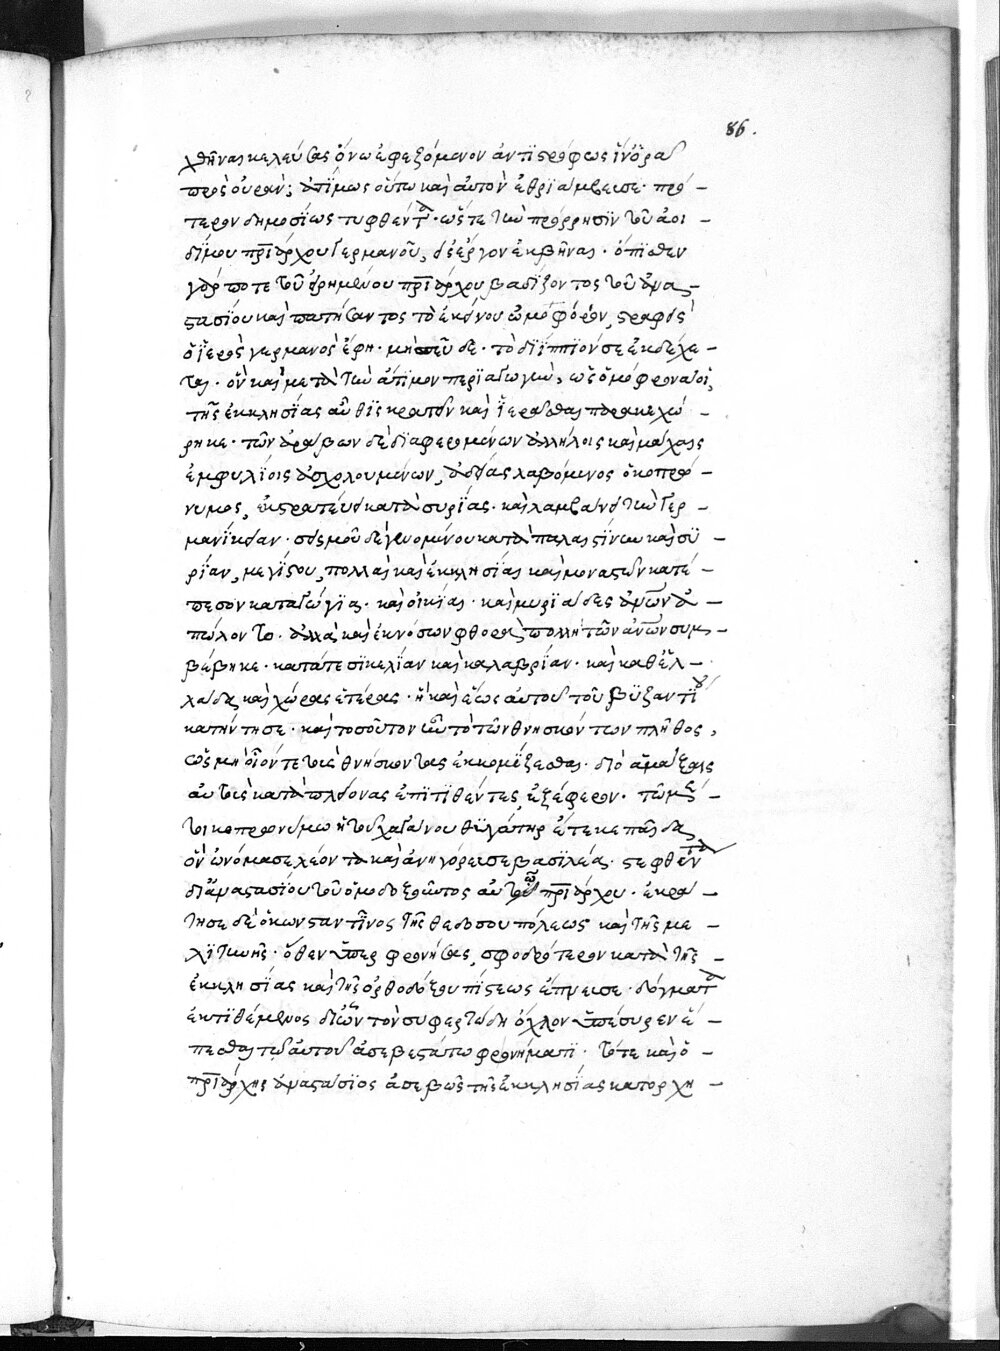 86.
χθῆναι κελεύσας ὄνῳ ἐφεζόμενον ἀντιστρόφως ἵν' ὁρᾷ
πρὸς οὐράν; ἀτίμως οὕτω καὶ αὐτὸν ἐθριάμβευσε· πρό-
τερον δημοσίως τυφθέντα· ὥστε τὴν πρόρρησιν τοῦ ἀοι-
δίμου πριάρχου Γερμανοῦ, εἰς ἔργον ἐκβῆναι· ὄπισθεν
γάρ ποτε τοῦ εἰρημένου πριάρχου βαδίζοντος τοῦ ἀνα-
στασίου καὶ πατήσαντος τὸ ἐκείνου ὠμοφόριον, στραφεὶς
ὁ ἱερὸς γερμανὸς ἔφη· μὴ σπεῦδε· τὸ διΐππιόν σε ἐκδέχε-
ται· ὃν καὶ μετὰ τὴν ἄτιμον περιαγωγὴν, ὡς ὁμόφρονα οἷ,
τῆς ἐκκλησίας αὖθις κρατεῖν καὶ ἱερᾶσθαι παρακεχώ-
ρηκε· τῶν ἀράβων δὲ διαφερομένων ἀλλήλοις καὶ μάχαις
ἐμφυλίοις ἀσχολουμένων, ἀδείας λαβόμενος ὁ κοπρώ-
νυμος, ἐκστρατεύει κατὰ συρίας· καὶ λαμβάνει τὴν Γερ-
μανίκειαν· σεισμοῦ δὲ γενομένου κατὰ παλαιστίνην καὶ συ-
ρίαν, μεγίστου, πολλαὶ καὶ ἐκκλησίαι καὶ μοναστῶν κατέ-
πεσον καταγώγια· καὶ οἰκίαι· καὶ μυριάδες ἀνων ἀ-
πώλοντο· ἀλλὰ καὶ ἐκ νόσων φθορὰ πολλὴ τῶν ἀνων συμ-
βέβηκε· κατά τε σικελίαν καὶ καλαβρίαν· καὶ καθ' ἑλ-
λάδα καὶ χώρας ἑτέρας· ἣ καὶ ἕως αὐτοῦ τοῦ βυζαντίου
κατήντησε· καὶ τοσοῦτον ἦν τὸ τῶν θνησκόντων πλῆθος,
ὡς μὴ οἷόν τε τοὺς θνήσκοντας ἐκκομίζεσθαι· διὸ ἁμάξαις
αὐτοὺς κατὰ πλείονας ἐπιτιθέντες, ἐξέφερον· τῷ μέν-
τοι κοπρωνύμῳ ἡ τοῦ χαγάνου θυγάτηρ ἔτεκε παῖδα,
ὃν ὠνόμασε λέοντα καὶ ἀνηγόρευσε βασιλέα· στεφθέντα
δι' ἀναστασίου τοῦ ὁμοδοξοῦντος αὐτῷ πριάρχου· ἐκρά-
τησε δὲ ὁ κωνσταντῖνος τῆς θεοδοσουπόλεως καὶ τῆς με-
λιτινῆς· ὅθεν ὑπερφρονήσας, σφοδρότερον κατὰ τῆς
ἐκκλησίας καὶ τῆς ὀρθοδόξου πίστεως ἔπνευσε· δόγματα
ἐκτιθέμενος δι' ὧν τὸν συφερτώδη ὄχλον ὑπέσυρεν ἕ-
πεσθαι τῷ αὐτοῦ ἀσεβεστάτῳ φρονήματι· τότε καὶ ὁ
πριάρχης ἀναστάσιος ἀσεβῶς τῆς ἐκκλησίας κατορχη-